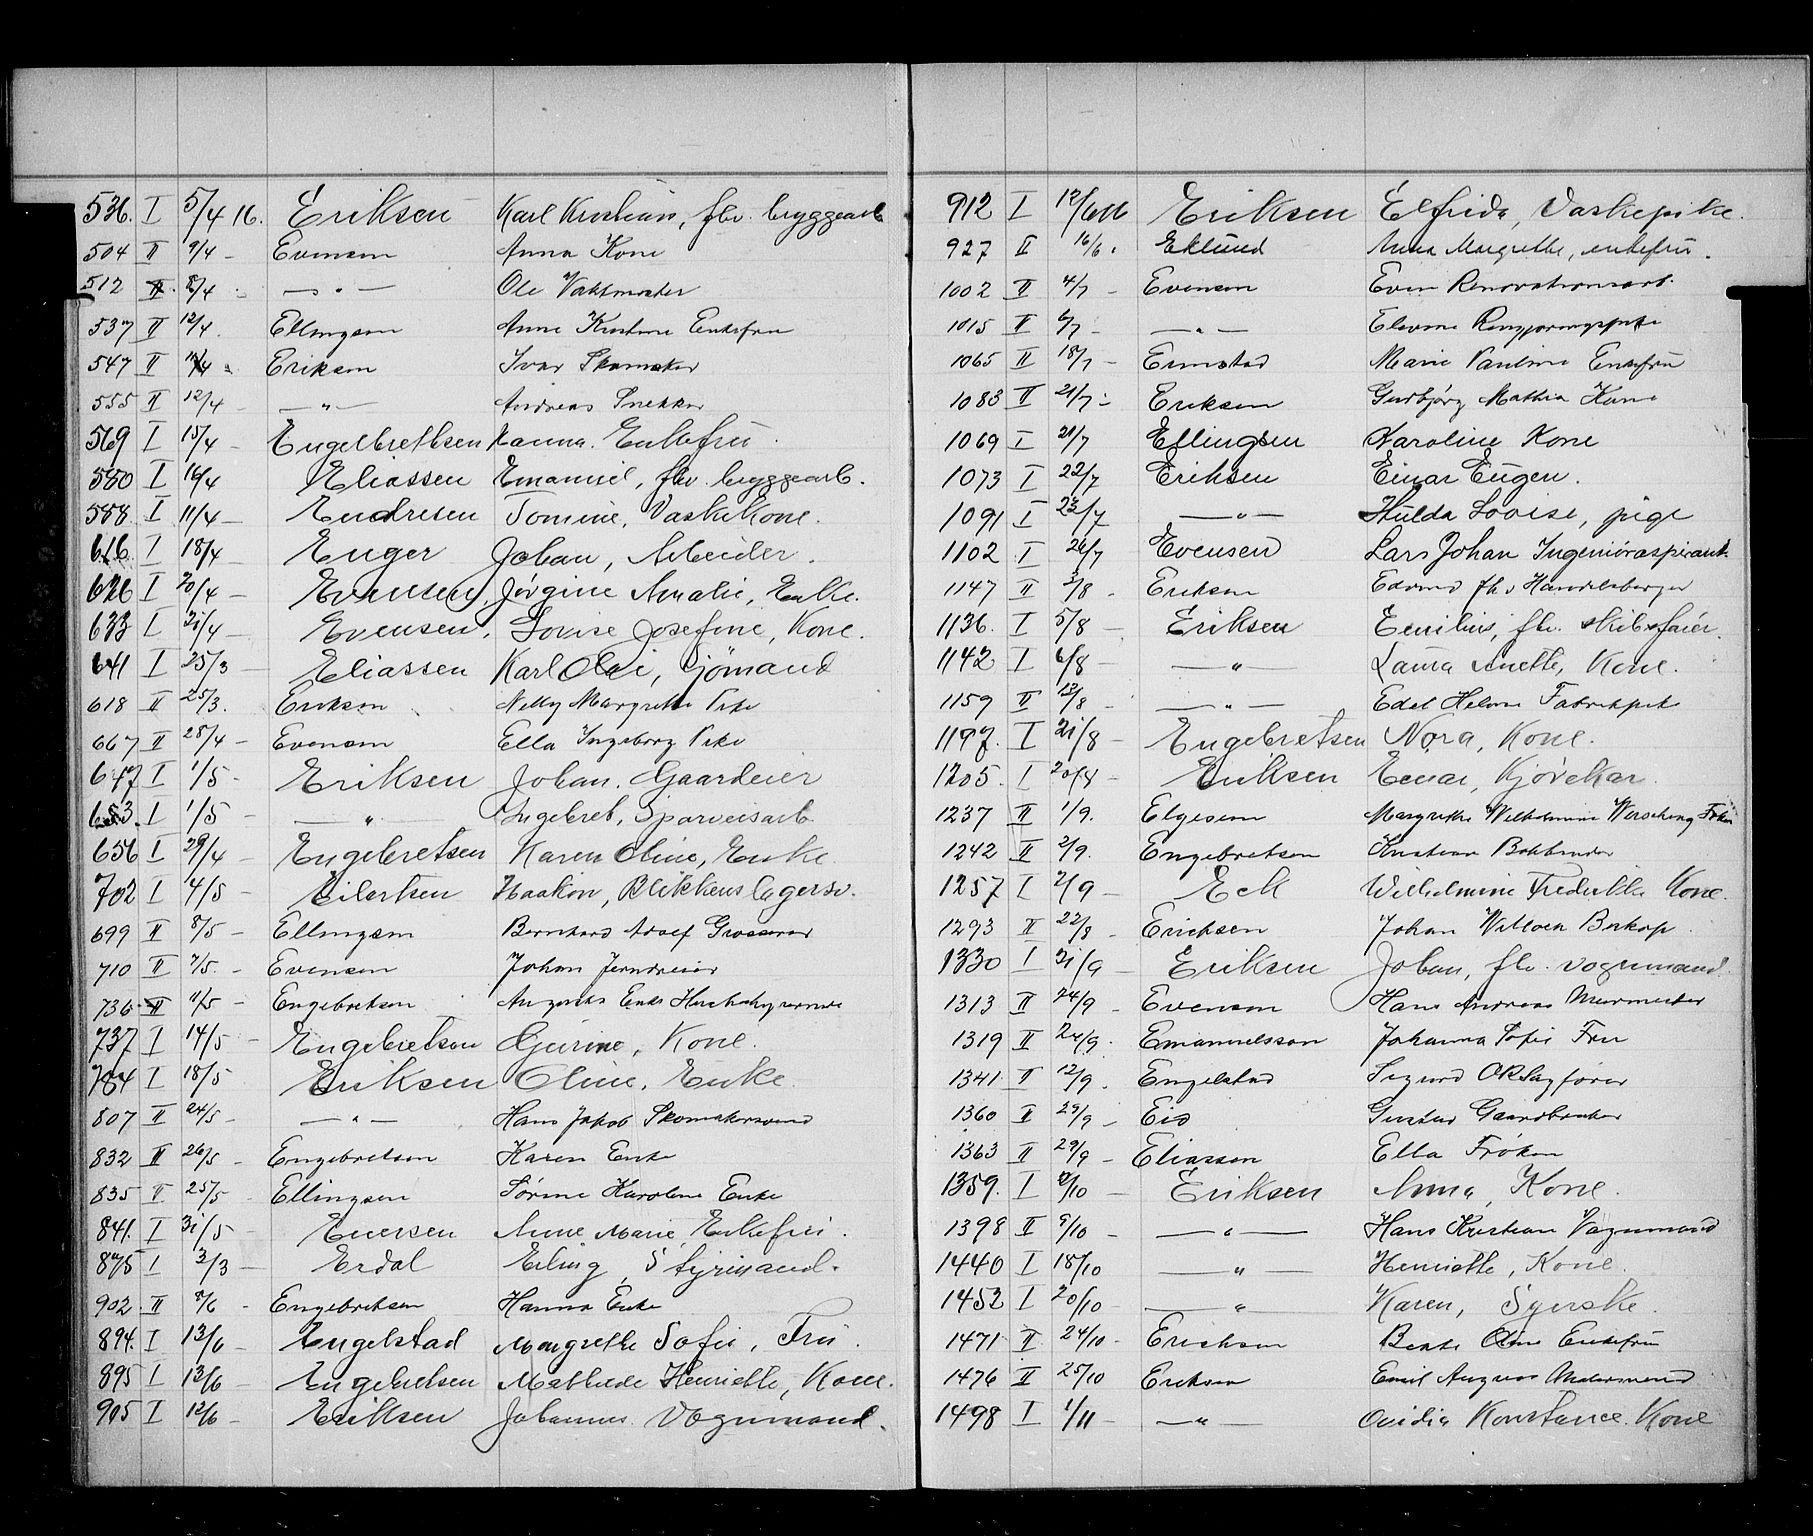 536. I 5/4 16. Eriksen Karl Kristian, flv. bryggearb
504 II 9/4 - Evensen Anna Kone
512 II 8/4 - " - Ole Vaktmester
537 II 12/4. Ellingsen Anne Kristine Enkefru
547 II 11/4 - Eriksen Ivar Skomaker
555 II 12/4 - - " - Andreas Snekker
569 I 15/4 - Engelbrethsen Hanna. Enkefru.
580 I 16/4 Eliassen Emanuel, flv. bryggearb.
588 I 11/4 - Endresen Tomine, Vaskekone.
616 I 18/4 Enger Johan, Arbeider.
626 I 20/4 - Evensen, Jørgine Amalie, Enke.
633 I 21/4 - Evensen, Lovise Josefine, Kone.
641 I 25/3 - Eliassen Karl Olai, Sjömand
618 II 25/3. Eriksen Nelly Margrethe Pike
667 II 28/4 - Evensen Ella Ingeborg Pike
647 I 1/5 - Eriksen Johan. Gaardeier
653. I 1/5 - - " - Ingebret, Sporveisarb.
656 I 29/4 - Engebretsen Karen Oline, Enke.
702 I 4/5 - Eilertsen Haakon, Blikkenslagersv.
699 II 8/5 - Ellingsen Bernhard Adolf Grosserer
710 II 7/5. - Evensen Johan Jerndreier
736 II 11/5 - Engebretsen Enke
737 I 14/5 - Engebretsen Gurine, Kone.
784 I 18/5 Eriksen Oline, Enke.
807 II 24/5 - - " - Hans Jakob Skomakersvend
832 II 26/5 - Engebretsen Karen Enke
835 II 25/5 - Ellingsen Sørine Karoline Enke
841. I 31/5 - Enersen Anne Marie, Enkefru.
875 I 3/3 - Erdal Erling, Styrmand.
902. II 8/6 - Engebretsen Hanna Enke
894. I 13/6 - Engelstad Margrethe Sofie, Fru.
895 I 13/6 - Engebretsen Mathilde Henriette, Kone.
905 I 12/6 - Eriksen Johannes Vognmand.
912 I 12/6 16 Eriksen Elfrida, Vaskepike.
927 II 16/6. Eklund Anna Margrethe, enkefru.
1002 II 4/7 - Evensen Even Renovationsarb.
1015 II 6/7 - - " - Elevine Rengjøringspike
1065 II 18/7 - Ermstad Marie Pauline Enkefru
1083 II 21/7 - Eriksen Gudbjørg Mathea Kone
1069 I 21/7 Ellingsen Karoline Kone
1073 I 22/7 Eriksen Einar Eugen.
1091 I 23/7 - " - Hulda Lovise, pige
1102 I 26/7 Evensen Lars Johan Ingeniøraspirant
1147 II 3/8 - Eriksen Edvard fhv Handelsborger
1136. I 5/8 - Eriksen Emilius, flv. skibsfører.
1142 I 6/8 - - " - Laura Anette, Kone.
1159 II 13/8 - - " - Edel Helene Fabrikpike
1197. I 21/8 - Engebretsen Nora, Kone.
1205. I 20/8 - Eriksen Einar, Kjørekar.
1237 II 1/9. Elgesem Margrethe Wilhelmine Frøken
1242 II 2/9. Engebretsen Kristian Bokbinder
1257 I 2/9 - Eek Wilhelmine Fredrikke Kone.
1293 II 22/8 - Erichsen Johan Willoch Biskop.
1330 I 21/9 - Eriksen Johan, flv. vognmand.
1313 II 24/9 - Evensen Hans Andreas Murmester
1319 II 24/9. Emanuelsson Johanna Sofie Fru
1341 II 12/9. Engelstad Sigurd ORSagfører
1360 II 29/9 - Eid Gustav Gaardbruker
1363 II 29/9 - Eliassen Ella Frøken
1359. I 2/10 - Eriksen Anna, Kone.
1398 II 9/10 - " - Hans Kristian Vognmand
1440 I 18/10 - " - Henriette, Kone.
1452 I 20/10 - " - Karen, Syerske.
1471 II 24/10 - Erichsen Beate Oline Enkefru
1476 II 25/10 Eriksen Emil August Andersmand
1498 I 1/11 - " - Ovidia Konstance. Kone